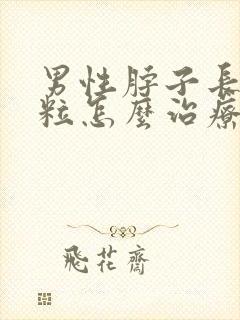 男性脖子長
粒怎麼治療
飛花齋